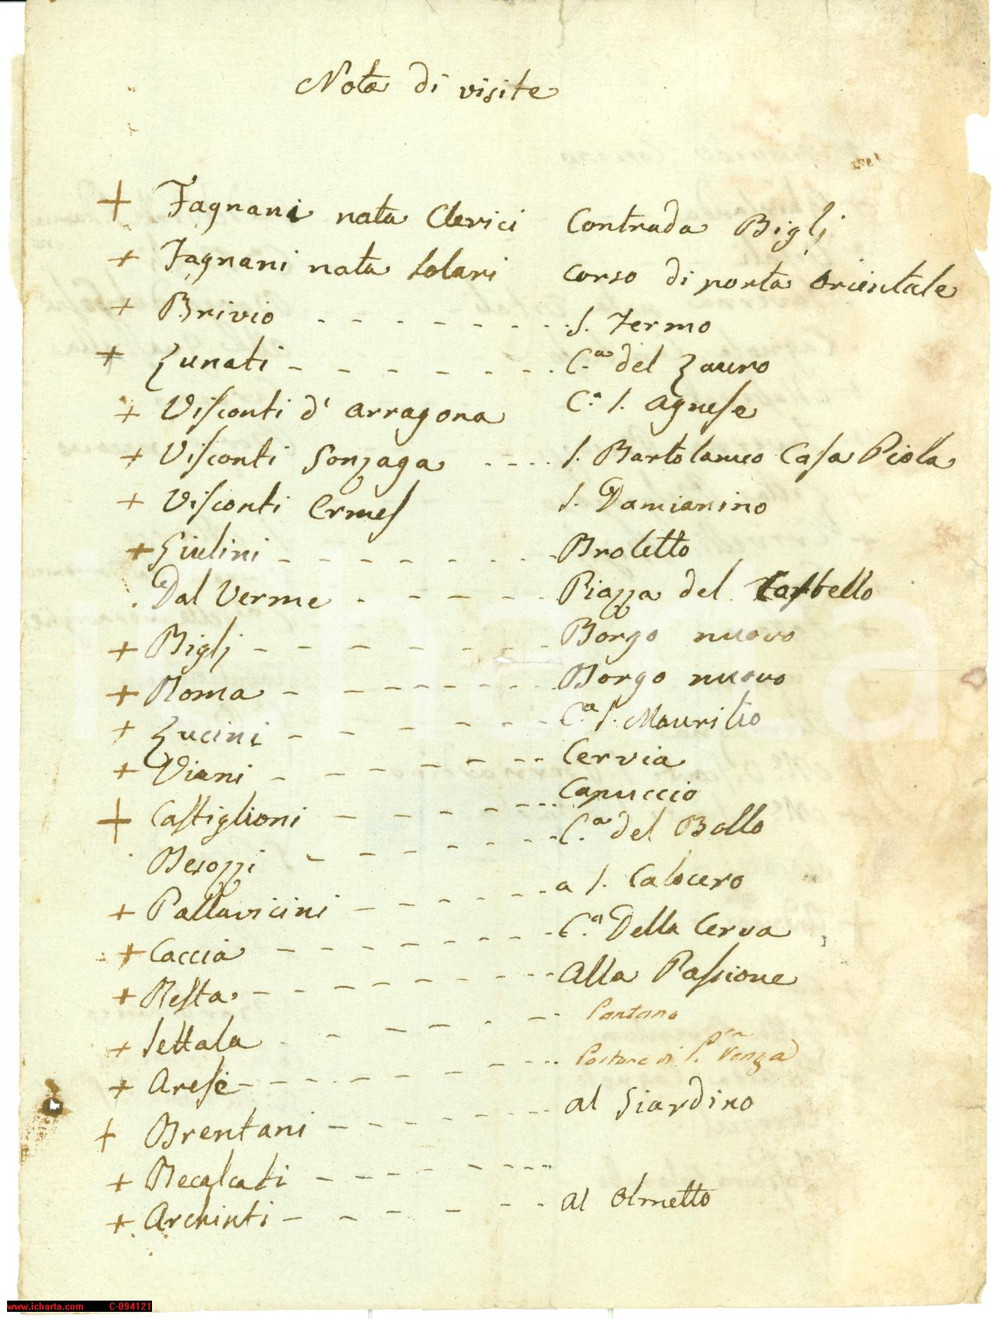 Nota di visite
+ Fagnani nata Clerici Contrada Biglj
+ Fagnani nata Solari corso di porta Orientale
+ Brivio - - - - - - - S. Fermo
+ Lunati - - - - - - C.a del Lauro
+ Visconti d' Arragona C.a S. Agnese
+ Visconti Gonzaga - - - - S. Bartolameo Casa Piola
+ Visconti Ermes S. Damianino
+ Giulini - - - - - - Broletto
Dal Verme - - - - - Piazza del Castello
+ Biglj - - - - - - Borgo nuovo
+ Roma - - - - - - Borgo nuovo
+ Lucini - - - - - C.a S. Maurilio
+ Viani - - - - - - Cervia
+ Castiglioni - - - - - Capuccio
Besozzi - - - - - - C.a del Bollo
+ Pallavicini - - - - - a S. Calocero
+ Caccia - - - - - - C.a Della Cerva
+ Resta - - - - - - Alla Passione
+ Settala - - - - - Pantano
+ Arese - - - - - - di S.
+ Brentani - - - - - al Giardino
+ Recalcati - - - - - -
+ Archinti - - - - - al Olmetto
icharta
www.icharta.com C-094121